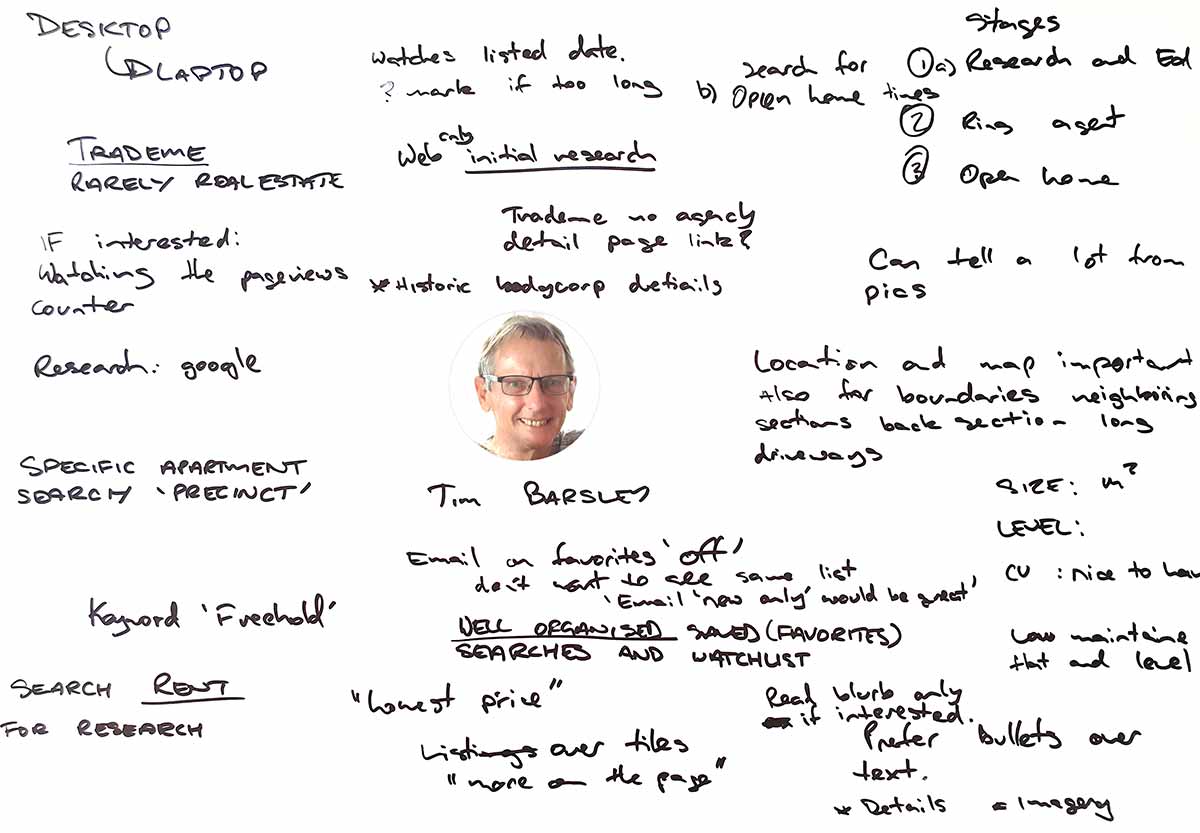 DESKTOP
LAPTOP
TRADEME
RARELY REALESTATE
IF interested:
Watching the pageviews
counter
Research: google
SPECIFIC APARTMENT
SEARCH 'PRECINCT'
Keyword 'Freehold'
SEARCH RENT
FOR RESEARCH
Watches listed date.
? mark if too long
Web only initial research
Trademe no agency
detail page link?
* Historic bodycorp
Tim
Email on favorites 'off'
don't want to see same list
'Email 'new only' would be great'
WELL ORGANISED SAVED (FAVORITES)
SEARCHES AND WATCHLIST
"lowest price"
Listings over tiles
"more on the page"
Stages
① a) Research and
b) search for
Open home times
② Ring agent
③ Open home
Can tell a lot from
pics
Location and map important
Also for boundaries neighboring
sections back section - long
driveways
SIZE: m²
LEVEL:
CV : nice to hav
Low
flat and level
Read blurb only
if interested.
Prefer bullets over
text.
* Details = Imagery